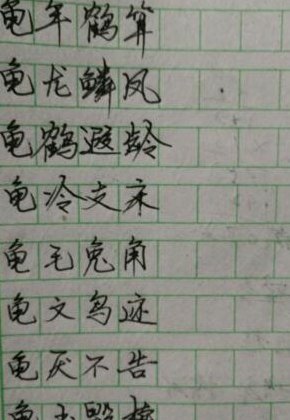 龟年鹤算
龟龙鳞凤
龟鹤遐龄
龟冷支床
龟毛兔角
龟文鸟迹
龟厌不告
龟玉毁椟